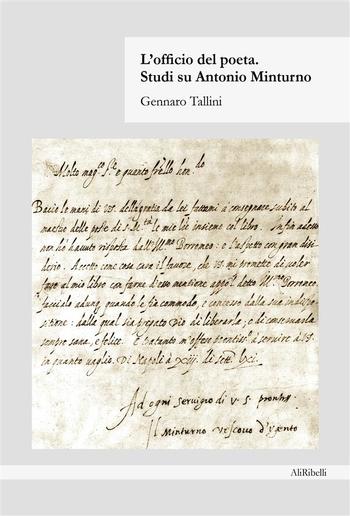 L'officio del poeta.
Studi su Antonio Minturno
Gennaro Tallini
Molto mag.co S.re e quanto fr̃ello hon.do
Bacio le mani di V.S. della gratia da lei fattami a consegnare subito al
maestro delle poste di S. M.tà le mie l'ré insieme col libro. In fin adesso
non hò havuto risposta dall'Ill.mo Borromeo: e l'aspetto con gran disi-
derio. Accetto come cosa cara il favore, che V.S. mi promette di voler
fare al mio libro con farne d'esso mentione appò l detto Ill.mo Borromeo
faccialo adunq quando le fia commodo, e concesso dalla sua indispo-
sitione: dalla qual sia pregato Dio di liberarla, e di conservarla
sempre sana, e felice. E tratanto m'offero prontiss.o a servire a V.S.
in quanto vaglio. Di Napoli à xiij. di sett. lxj.
Ad ogni servigio di V. S. pronto
Il Minturno Vescovo d'Ugento
AliRibelli